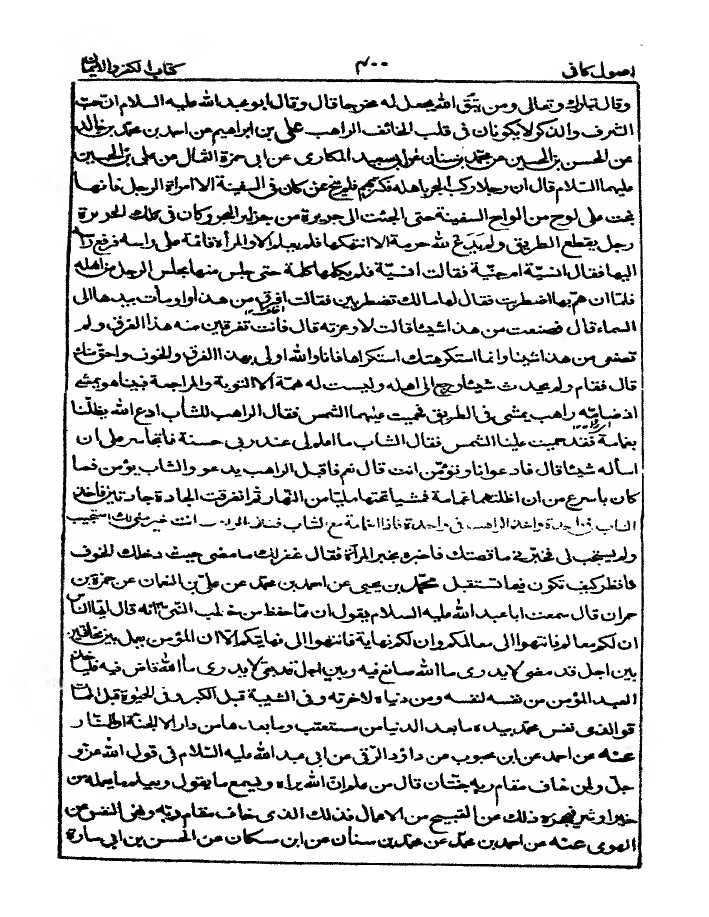 اصول كافى ٤٠٠ كتاب الكفر والايمان
وقال تبارك وتعالى ومن يتّق الله يجعل له مخرجا قال وقال ابو عبدالله عليه السلام انّ حبّ
الشرف والذكر لا يكونان فى قلب الخائف الراهب على بن ابراهيم عن احمد بن محمد بن خالد
عن الحسن بن الحسين عن محمد بن سنان عن ابى سعيد المكارى عن ابى حمزة الثمالى عن على بن الحسين
عليهما السلام قال ان رجلا ركب البحر باهله فكسر بهم فلم ينج ممن كان فى السفينة الا امراة الرجل فانها
نجت على لوح من الواح السفينة حتى الجئت الى جزيرة من جزاير البحر وكان فى تلك الجزيرة
رجل يقطع الطريق ولم يدع لله حرمة الا انتهكها فلم يعلم الا والمرأة قائمة على راسه فرفع راسه
اليها فقال انسيّة ام جنيّة فقالت انسيّة فلم يكلمها كلمة حتى جلس منها مجلس الرجل من اهله
فلمّا ان همّ بها اضطربت فقال لها مالك تضطربين فقالت افرق من هذا واومأت بيدها الى
السماء قال فصنعت من هذا شيئا قالت لا وعزته قال فانت تفرقين منه هذا الفرق ولم
تصنعى من هذا شيئا وانما استكرهتك استكراها فانا والله اولى بهذا الفرق والخوف واحق منك
قال فقام ولم يحدث شيئا ورجع الى اهله وليست له همّة الا التوبة والمراجعة فبينا هو يمشى
اذ صادفه راهب يمشى فى الطريق فحميت عليهما الشمس فقال الراهب للشاب ادع الله يظلّنا
بغمامة فقد حميت علينا الشمس فقال الشاب ما اعلم لى عند ربى حسنة فاتجاسر على ان
اسأله شيئا قال فادعو انا وتؤمّن انت قال نعم فاقبل الراهب يدعو والشاب يؤمن فما
كان باسرع من ان اظلتهما غمامة فمشيا تحتها مليّا من النهار ثم انفرقت الجادة جادتين فاخذ
الشاب فى واحدة واخذ الراهب فى واحدة فاذا الغمامة مع الشاب فقال الراهب انت خير منى لك استجيب
ولم يستجب لى فخبرنى ما قصتك فاخبره بخبر المرأة فقال غفر لك ما مضى حيث دخلك الخوف
فانظر كيف تكون فيما تستقبل محمّد بن يحيى عن احمد بن محمّد عن علىّ بن النعمان عن حمزة بن
حمران قال سمعت ابا عبد الله عليه السلام يقول ان ممّا حفظ من خطب النبى انه قال ايها الناس
ان لكم معالم فانتهوا الى معالمكم وان لكم نهاية فانتهوا الى نهايتكم الا ان المؤمن يعمل بين مخافتين
بين اجل قد مضى لا يدرى ما الله صانع فيه وبين اجل قد بقى لا يدرى ما الله قاض فيه فلياخذ
العبد المؤمن من نفسه لنفسه ومن دنياه لاخرته وفى الشيبة قبل الكبر وفى الحيوة قبل الممات
فو الذى نفس محمّد بيده ما بعد الدنيا من مستعتب وما بعدها من دار الا الجنّة او النار
عنه عن احمد عن ابن محبوب عن داود الرّقى عن ابى عبد الله عليه السّلام فى قول الله عزّو
جلّ ولمن خاف مقام ربه جنّتان قال من علم ان الله يراه ويسمع ما يقول ويعلم ما يعمله من
خير او شر فيحجزه ذلك عن القبيح من الاعمال فذلك الذى خاف مقام ربّه ونهى النفس عن
الهوى عنه عن احمد بن محمّد عن محمّد بن سنان عن ابن مسكان عن الحسن بن ابى سارة